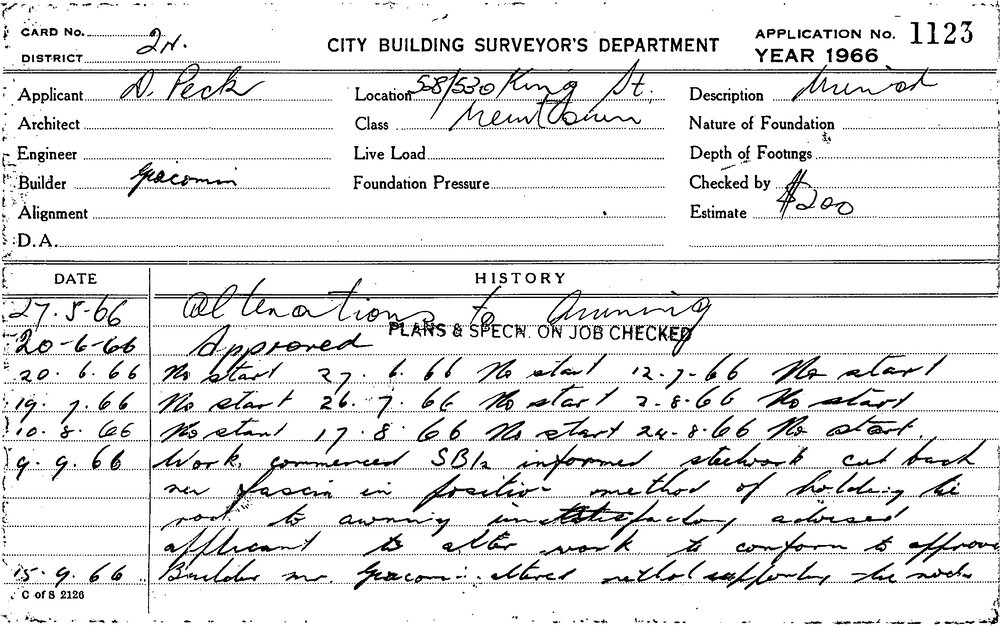 CARD No.
DISTRICT 2N.
CITY BUILDING SURVEYOR'S DEPARTMENT
APPLICATION No. 1123
YEAR 1966
Applicant D. Peck
Location 528/530 King St.
Description Awning
Architect
Class Newtown
Nature of Foundation
Engineer
Live Load
Depth of Footings
Builder Giacomin
Foundation Pressure
Checked by
Alignment
Estimate $200
D.A.
DATE HISTORY
27.5.66 Alterations to Awning
PLANS & SPECN. ON JOB CHECKED
20-6-66 Approved
20.6.66 No start 27.6.66 No start 12.7.66 No start
19.7.66 No start 26.7.66 No start 2.8.66 No start
10.8.66 No start 17.8.66 No start 24.8.66 No start.
9.9.66 Work commenced informed steelwork cut back
new fascia in position method of holding tie
rod to awning unsatisfactory advised
applicant to alter work to conform to approv
15.9.66 Builder Mr Giacomin altered method supporting tie rods
C of S 2126